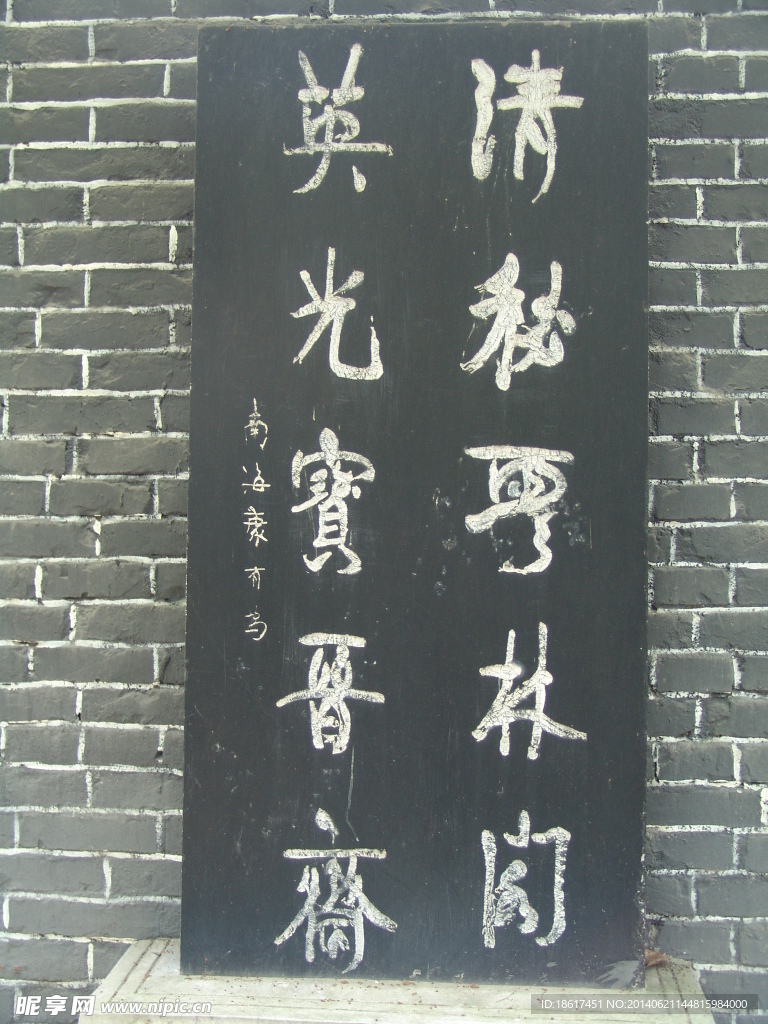 清秘雲林閣
英光寶晉齋
南海康有為
昵享网 www.nipic.cn
ID:18617451 NO:20140621144815984000